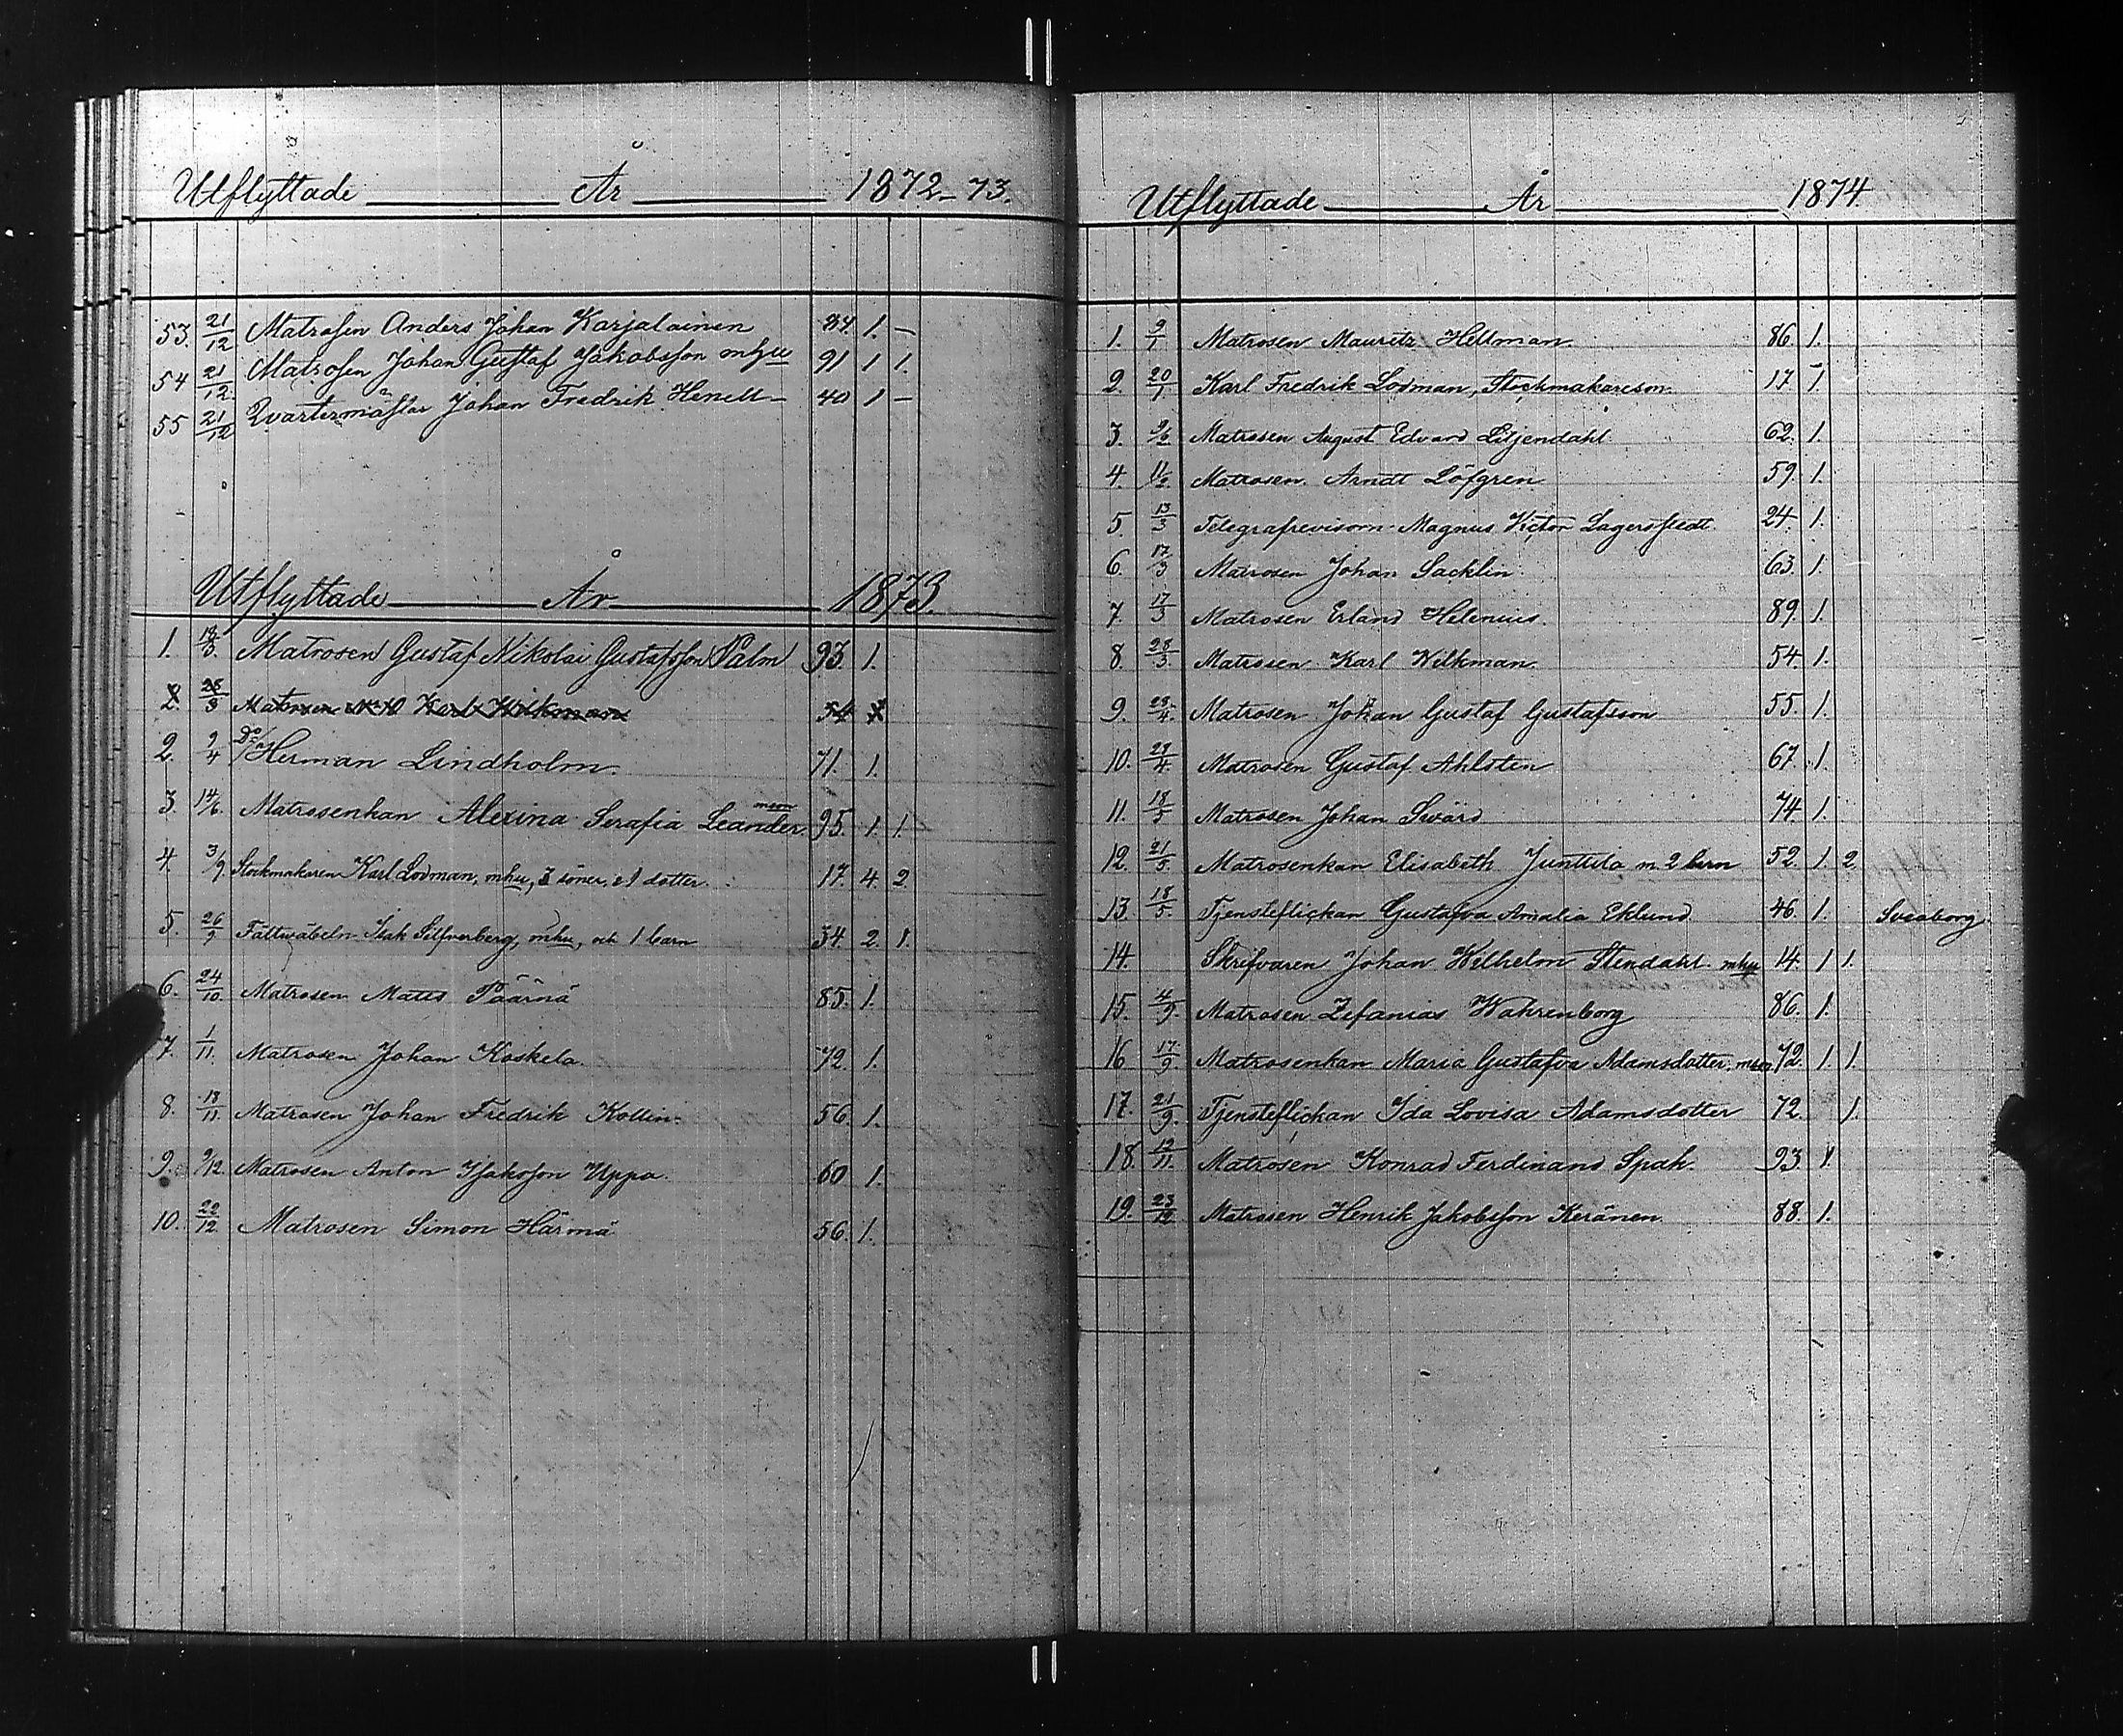 Utflyttade År 1872-73.
53. 21/12 Matrosen Anders Johan Karjalainen 84. 1. –
54 21/12. Matrosen Johan Gustaf Jakobsson mhu 91 1 1.
55 21/12 Qvartermästar Johan Fredrik Henell – 40 1 –
Utflyttade År 1873.
1. 18/3. Matrosen Gustaf Nikolai Gustafsson Palm 93. 1.
2. 28/3 Matrosen Karl Wilkman 54 1
2. 2/4 Do Herman Lindholm. 71. 1.
3. 14/6. Matrosenkan Alexina Serafia Leander. mson 95. 1. 1.
4. 3/9. Stockmakaren Karl Lodman, mhu, 3 söner, o 1 dotter. 17. 4. 2.
5. 26/9 Fältwäbeln Isak Silfverberg, mhu, och 1 barn 34. 2. 1.
6. 24/10. Matrosen Matts Päärnä 85. 1.
7. 1/11. Matrosen Johan Koskela. 72. 1.
8. 18/11. Matrosen Johan Fredrik Kollin. 56. 1.
9. 9/12. Matrosen Anton Isaksson Uppa. 60 1.
10. 22/12. Matrosen Simon Härmä 56. 1.
Utflyttade År 1874
1. 9/1 Matrosen Mauritz Hellman. 86. 1.
2. 20/1 Karl Fredrik Lodman, Stockmakareson. 17 1.
3. 9/2 Matrosen August Edvard Liljendahl 62. 1.
4. 11/2. Matrosen Arndt Löfgren 59. 1.
5. 13/3 Telegrafrevisorn Magnus Victor Lagerstedt 24 1.
6. 17/3 Matrosen Johan Sacklin. 63. 1.
7. 17/3 Matrosen Erland Helenius. 89. 1.
8. 28/3 Matrosen Karl Wilkman. 54. 1.
9. 28/4. Matrosen Johan Gustaf Gustafsson 55. 1.
10. 29/4. Matrosen Gustaf Ahlsten 67. 1.
11. 18/5 Matrosen Johan Swärd 74. 1.
12. 21/5. Matrosenkan Elisabeth Junttila m. 2 barn 52. 1. 2.
13. 18/5. Tjensteflickan Gustafva Amalia Eklund 46. 1. Sveaborg.
14. Skrifvaren Johan Wilhelm Stendahl mhu 14. 1 1.
15. 4/9. Matrosen Zefanias Wahrenborg 86. 1.
16 17/9. Matrosenkan Maria Gustafva Adamsdotter, mson. 72. 1. 1.
17. 21/9. Tjensteflickan Ida Lovisa Adamsdotter 72 1.
18. 12/11. Matrosen Konrad Ferdinand Spak. 93. 1.
19. 23/12 Matrosen Henrik Jakobsson Keränen 88. 1.